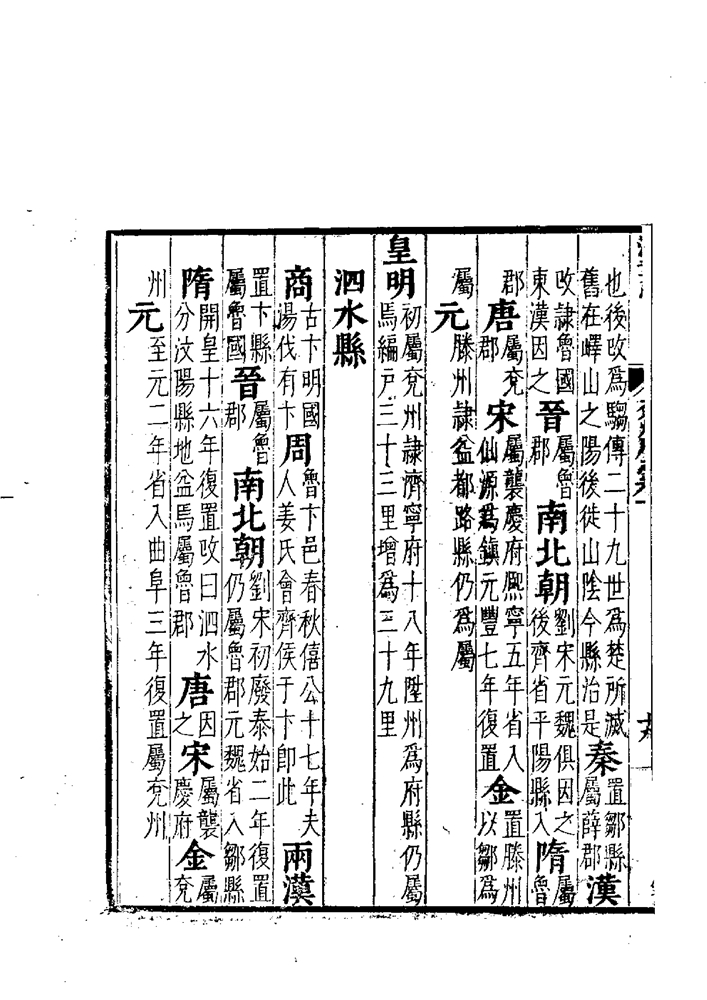 也後改爲騶傳二十九世爲楚所滅舊在嶧山之陽後徙山陰今縣治是秦置鄒縣屬薛郡漢
改隷魯國東漢因之晉屬魯郡南北朝劉宋元魏俱因之後齊省平陽縣入隋屬魯
郡唐屬兖郡宋屬襲慶府熈寧五年省入仙源爲鎮元豐七年復置金置滕州以鄒爲
屬元滕州隷益都路縣仍爲屬
皇明初屬兖州隷濟寧府十八年陞州爲府縣仍屬焉編户三十三里增爲三十九里
泗水縣
商古卞明國湯伐有卞周魯卞邑春秋僖公十七年夫人姜氏會齊侯于卞卽此兩漢
置卞縣屬魯國晉屬魯郡南北朝劉宋初廢泰始二年復置仍屬魯郡元魏省入鄒縣
隋開皇十六年復置改曰泗水分汶陽縣地益焉屬魯郡唐因之宋屬襲慶府金屬兖
州元至元二年省入曲阜三年復置屬兖州